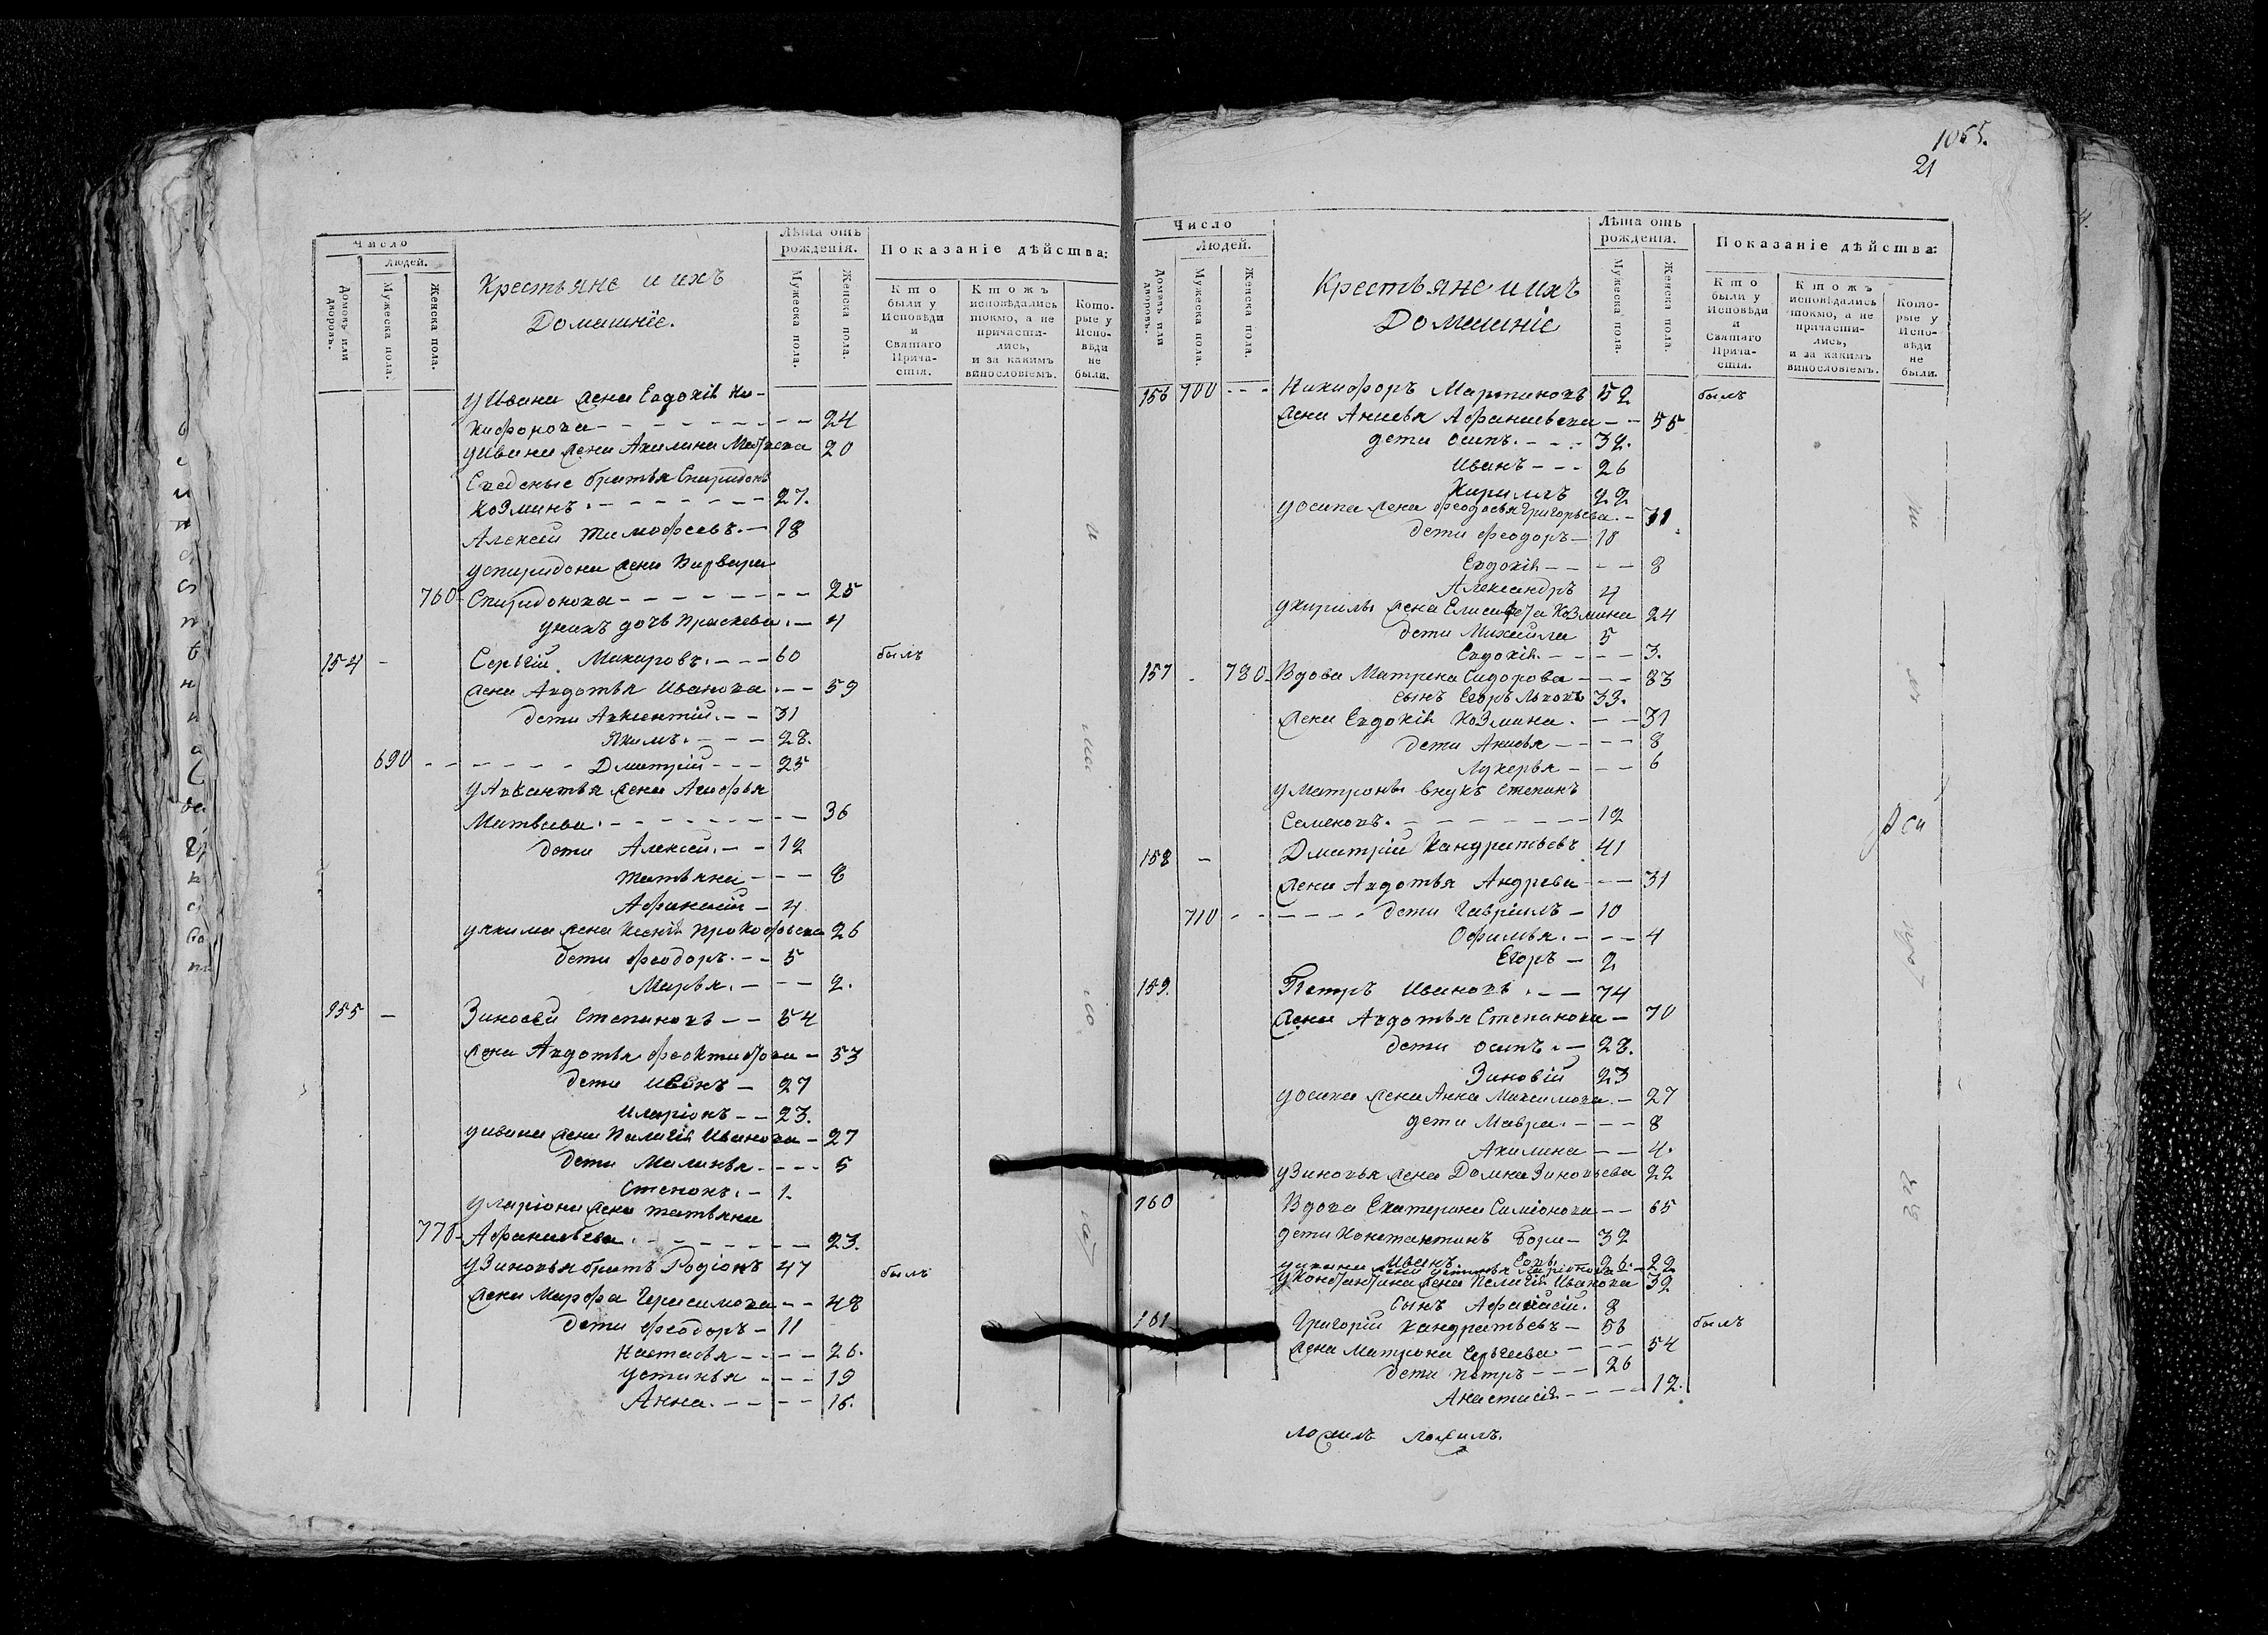 Число
Людей.
Домовъ или дворовъ.
Мужеска пола.
Женска пола.
Крестьяне и ихъ
Домашніе.
Лѣта отъ рожденія.
Мужеска пола.
Женска пола.
Показаніе дѣйства:
Кто были у Исповѣди и Святаго Причастія.
Ктожъ исповѣдались токмо, а не причастились, и за какимъ винословіемъ.
Которые у Исповѣди не были.
у Ивана жена Евдокія Ни-
кифорова 24
у Ивана жена Акилина 20
Сведеные братья Спиридонъ
Козминъ. 27.
Алексей Тимофеевъ. 18
у Спиридона жена Варвара
760 Спиридонова 25
у нихъ дочь Праскева. 4
154 Сергій Макаровъ. 60 былъ
жена Авдотья Иванова 59
дети Авксентій. 31
Якимъ. 28.
690 Дмитрій 25
жена Агафья
Матвеева. 36
дети Алексей. 12
Татьяна 8
Афанасій 4
у Якима жена Ксенія Прокофьева 26
дети Феодоръ. 5
Марья. 2.
155 Зиновей Степановъ 54
жена Авдотья Феоктистова 53
дети Иванъ 27
Иларіонъ 23.
у Ивана жена Палагія Иванова 27
дети Маланья 5
Степанъ. 1.
у Ларіона жена Татьяна
770 Афанасьева 23.
у Зиновья братъ Родіонъ 47 былъ
жена Марфа Герасимова 48
дети Феодоръ 11
Настасья 26.
Устинья 19
Анна. 16.
1065.
21
Число
Людей.
Домовъ или дворовъ.
Мужеска пола.
Женска пола.
Крестьяне и ихъ
Домашніе
Лѣта отъ рожденія.
Мужеска пола.
Женска пола.
Показаніе дѣйства:
Кто были у Исповѣди и Святаго Причастія.
Ктожъ исповѣдались токмо, а не причастились, и за какимъ винословіемъ.
Которые у Исповѣди не были.
156 700 Никифоръ Мартиновъ 52 былъ
жена Анисья Афанасьева 55
дети Осипъ. 32.
Иванъ 26
Кирилъ 22
у Осипа жена Феодосья Григорьева. 31
дети Феодоръ 10
Евдокія 8
Александръ 4
у Кирилы жена Елисавета Козмина 24
дети Михайла 5
Евдокія. 3.
157 780 Вдова Матрена Сидорова 83
сынъ Егоръ 33.
жена Евдокія Козмина. 31
дети Анисья 8
Лукерья 6
у Матроны внукъ Степанъ
Семеновъ. 12
158 Дмитрій Кандратьевъ 41
жена Авдотья Андреева 31
710 дети Гавріилъ 10
Офимья. 4
Егоръ 2
159. Петръ Ивановъ 74
жена Авдотья Степанова 70
дети Осипъ. 28.
Зиновій 23
у Осипа жена Анна Максимова. 27
дети Мавра. 8
Акилина 4.
у Зиновья жена Домна Зиновьева 22
160 Вдова Екатерина Симіонова 65
дети Константинъ 32
Иванъ 26. 22
у Константина жена Пелагія Иванова 32
сынъ Афанасій. 8
161 Григорій Кандратьевъ 58 былъ
жена Матрона Сергеева. 54
дети Петръ 26
Анастасія 12.